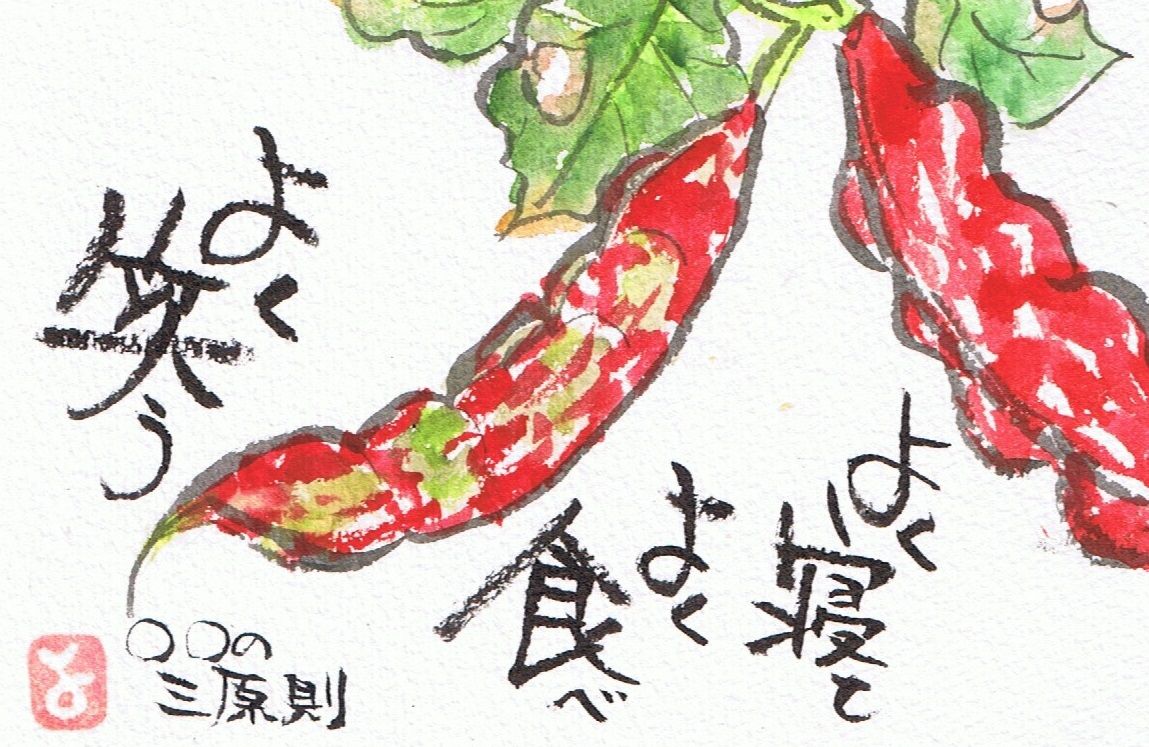 よく
寝て
よく
食べ
よく
笑う
〇〇の
三原則
よ